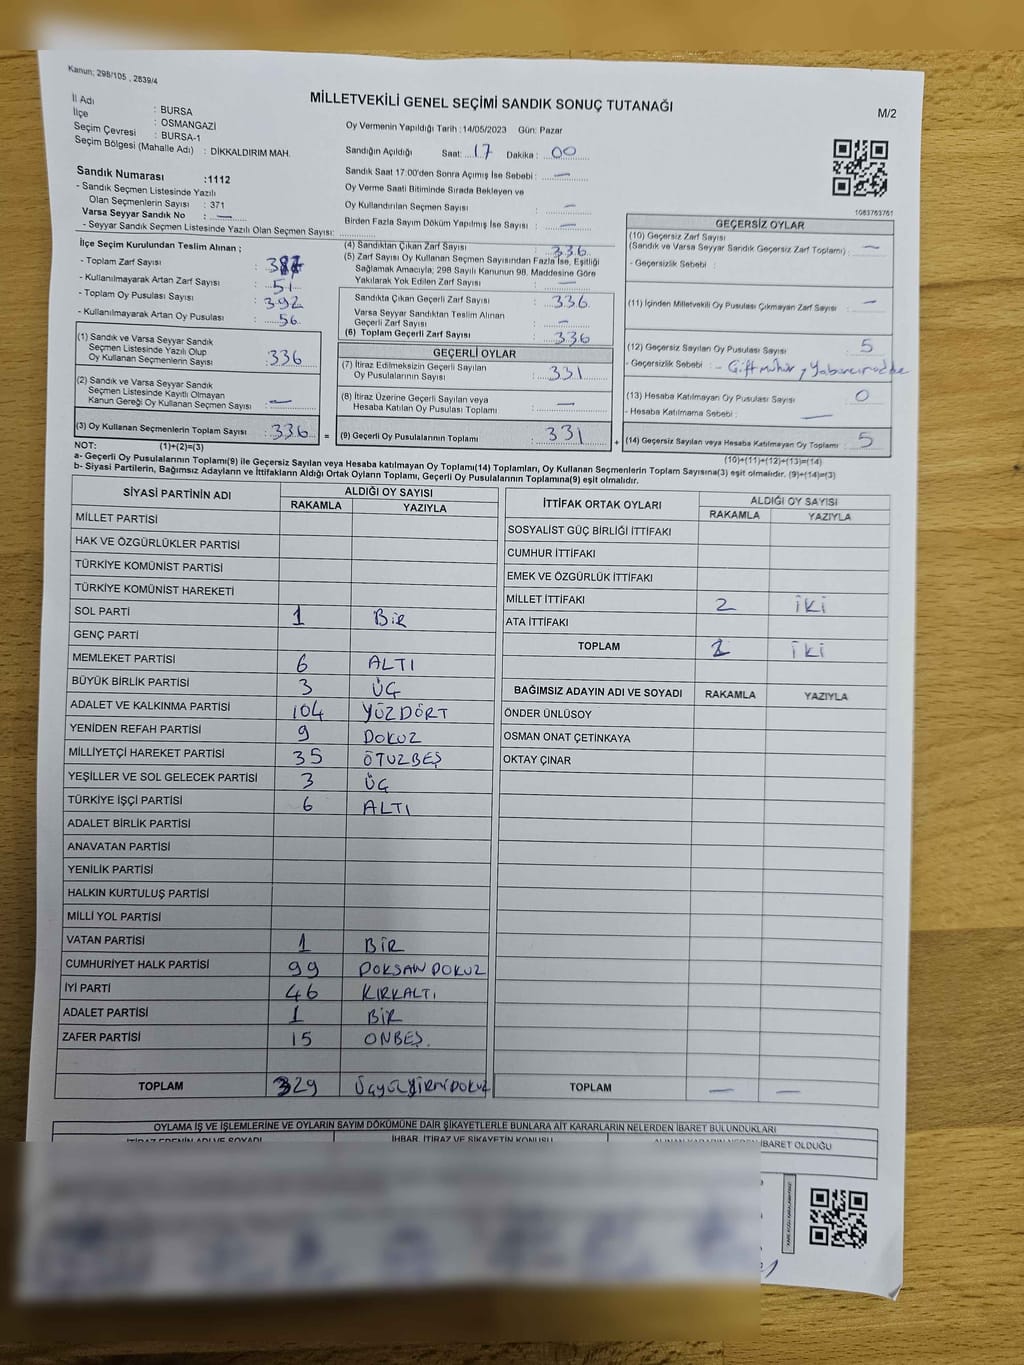 Kanun; 298/105 , 2839/4
MİLLETVEKİLİ GENEL SEÇİMİ SANDIK SONUÇ TUTANAĞI
M/2
İl Adı : BURSA
İlçe : OSMANGAZİ
Seçim Çevresi : BURSA-1
Seçim Bölgesi (Mahalle Adı) : DİKKALDIRIM MAH.
Sandık Numarası :1112
- Sandık Seçmen Listesinde Yazılı
Olan Seçmenlerin Sayısı : 371
Varsa Seyyar Sandık No : —
- Seyyar Sandık Seçmen Listesinde Yazılı Olan Seçmen Sayısı:
Oy Vermenin Yapıldığı Tarih :14/05/2023 Gün: Pazar
Sandığın Açıldığı Saat: 17 Dakika : 00
Sandık Saat 17:00'den Sonra Açımış İse Sebebi : —
Oy Verme Saati Bitiminde Sırada Bekleyen ve
Oy Kullandırılan Seçmen Sayısı : —
Birden Fazla Sayım Döküm Yapılmış İse Sayısı : —
1083763761
İlçe Seçim Kurulundan Teslim Alınan ;
- Toplam Zarf Sayısı : 387
- Kullanılmayarak Artan Zarf Sayısı : 51
- Toplam Oy Pusulası Sayısı : 392
- Kullanılmayarak Artan Oy Pusulası : 56
(1) Sandık ve Varsa Seyyar Sandık
Seçmen Listesinde Yazılı Olup
Oy Kullanan Seçmenlerin Sayısı : 336
(2) Sandık ve Varsa Seyyar Sandık
Seçmen Listesinde Kayıtlı Olmayan
Kanun Gereği Oy Kullanan Seçmen Sayısı : —
(3) Oy Kullanan Seçmenlerin Toplam Sayısı : 336 =
(4) Sandıktan Çıkan Zarf Sayısı : 336
(5) Zarf Sayısı Oy Kullanan Seçmen Sayısından Fazla İse, Eşitliği
Sağlamak Amacıyla; 298 Sayılı Kanunun 98. Maddesine Göre
Yakılarak Yok Edilen Zarf Sayısı : —
Sandıkta Çıkan Geçerli Zarf Sayısı : 336
Varsa Seyyar Sandıktan Teslim Alınan
Geçerli Zarf Sayısı : —
(6) Toplam Geçerli Zarf Sayısı : 336
GEÇERLİ OYLAR
(7) İtiraz Edilmeksizin Geçerli Sayılan
Oy Pusulalarının Sayısı : 331
(8) İtiraz Üzerine Geçerli Sayılan veya
Hesaba Katılan Oy Pusulası Toplamı : —
(9) Geçerli Oy Pusulalarının Toplamı : 331 +
GEÇERSİZ OYLAR
(10) Geçersiz Zarf Sayısı
(Sandık ve Varsa Seyyar Sandık Geçersiz Zarf Toplamı) : —
- Geçersizlik Sebebi :
(11) İçinden Milletvekili Oy Pusulası Çıkmayan Zarf Sayısı : —
(12) Geçersiz Sayılan Oy Pusulası Sayısı : 5
- Geçersizlik Sebebi : - Çift mühür,
(13) Hesaba Katılmayan Oy Pusulası Sayısı : 0
- Hesaba Katılmama Sebebi : —
(14) Geçersiz Sayılan veya Hesaba Katılmayan Oy Toplamı : 5
(10)+(11)+(12)+(13)=(14)
NOT: (1)+(2)=(3)
a- Geçerli Oy Pusulalarının Toplamı(9) ile Geçersiz Sayılan veya Hesaba katılmayan Oy Toplamı(14) Toplamları, Oy Kullanan Seçmenlerin Toplam Sayısına(3) eşit olmalıdır. (9)+(14)=(3)
b- Siyasi Partilerin, Bağımsız Adayların ve İttifakların Aldığı Ortak Oyların Toplamı, Geçerli Oy Pusulalarının Toplamına(9) eşit olmalıdır.
SİYASİ PARTİNİN ADI ALDIĞI OY SAYISI
RAKAMLA YAZIYLA
MİLLET PARTİSİ
HAK VE ÖZGÜRLÜKLER PARTİSİ
TÜRKİYE KOMÜNİST PARTİSİ
TÜRKİYE KOMÜNİST HAREKETİ
SOL PARTİ 1 BİR
GENÇ PARTİ
MEMLEKET PARTİSİ 6 ALTI
BÜYÜK BİRLİK PARTİSİ 3 ÜÇ
ADALET VE KALKINMA PARTİSİ 104 YÜZDÖRT
YENİDEN REFAH PARTİSİ 9 DOKUZ
MİLLİYETÇİ HAREKET PARTİSİ 35 OTUZBEŞ
YEŞİLLER VE SOL GELECEK PARTİSİ 3 ÜÇ
TÜRKİYE İŞÇİ PARTİSİ 6 ALTI
ADALET BİRLİK PARTİSİ
ANAVATAN PARTİSİ
YENİLİK PARTİSİ
HALKIN KURTULUŞ PARTİSİ
MİLLİ YOL PARTİSİ
VATAN PARTİSİ 1 BİR
CUMHURİYET HALK PARTİSİ 99 DOKSAN DOKUZ
İYİ PARTİ 46 KIRKALTI
ADALET PARTİSİ 1 BİR
ZAFER PARTİSİ 15 ONBEŞ.
TOPLAM 329 ÜçyüzyirmiDOKUZ
İTTİFAK ORTAK OYLARI ALDIĞI OY SAYISI
RAKAMLA YAZIYLA
SOSYALİST GÜÇ BİRLİĞİ İTTİFAKI
CUMHUR İTTİFAKI
EMEK VE ÖZGÜRLÜK İTTİFAKI
MİLLET İTTİFAKI 2 İKİ
ATA İTTİFAKI
TOPLAM 2 İKİ
BAĞIMSIZ ADAYIN ADI VE SOYADI RAKAMLA YAZIYLA
ÖNDER ÜNLÜSOY
OSMAN ONAT ÇETİNKAYA
OKTAY ÇINAR
TOPLAM — —
OYLAMA İŞ VE İŞLEMLERİNE VE OYLARIN SAYIM DÖKÜMÜNE DAİR ŞİKAYETLERLE BUNLARA AİT KARARLARIN NELERDEN İBARET BULUNDUKLARI
İTİRAZ EDENİN ADI VE SOYADI İHBAR, İTİRAZ VE ŞİKAYETİN KONUSU ALINAN KARARIN NEDEN İBARET OLDUĞU